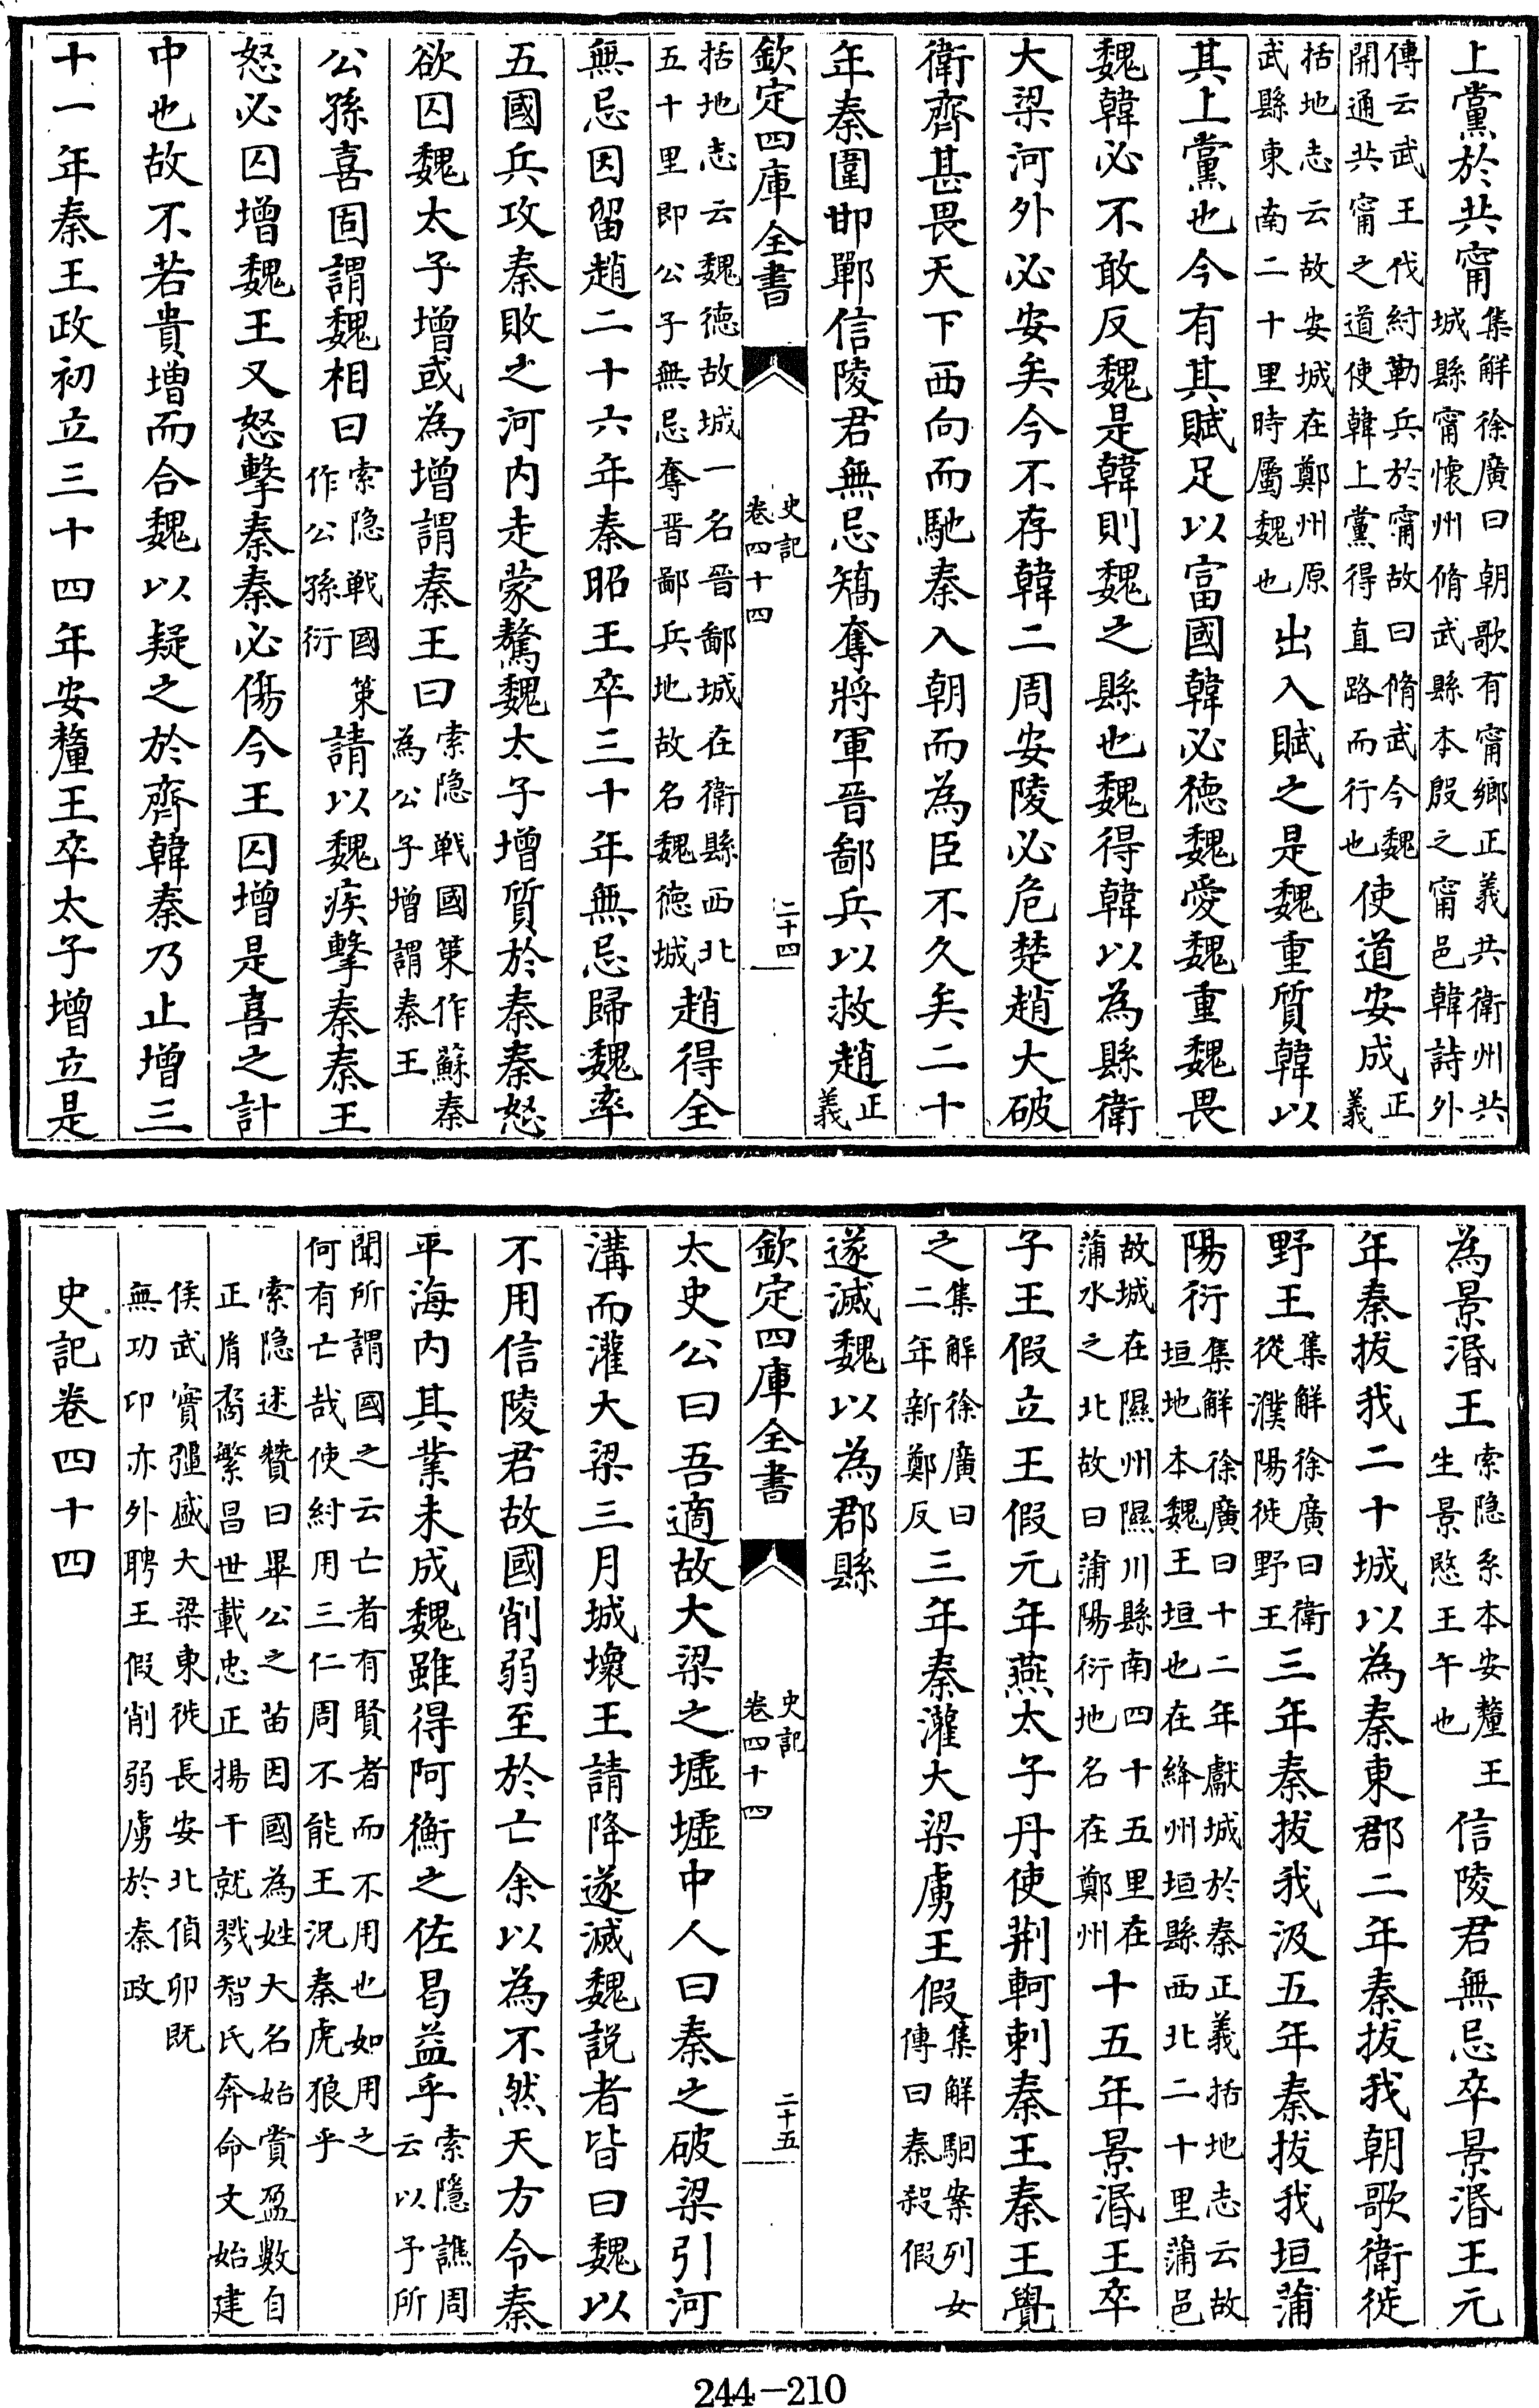 上黨於共甯集解徐廣曰朝歌有甯鄉正義共衛州共城縣甯懷州脩武縣本殷之甯邑韓詩外
傳云武王伐紂勒兵於甯故曰脩武今魏開通共甯之道使韓上黨得直路而行也使道安成正義
括地志云故安城在鄭州原武縣東南二十里時屬魏也出入賦之是魏重質韓以
其上黨也今有其賦足以富國韓必德魏愛魏重魏畏
魏韓必不敢反魏是韓則魏之縣也魏得韓以為縣衛
大梁河外必安矣今不存韓二周安陵必危楚趙大破
衛齊甚畏天下西向而馳秦入朝而為臣不久矣二十
年秦圍邯鄲信陵君無忌矯奪將軍晉鄙兵以救趙正義
欽定四庫全書 史記卷四十四 二十四
括地志云魏德故城一名晉鄙城在衛縣西北五十里即公子無忌奪晉鄙兵地故名魏德城趙得全
無忌因留趙二十六年秦昭王卒三十年無忌歸魏率
五國兵攻秦敗之河內走蒙驁魏太子增質於秦秦怒
欲囚魏太子增或為增謂秦王曰索隐戰國策作蘇秦為公子增謂秦王
公孫喜固謂魏相曰索隐戰國策作公孫衍請以魏疾擊秦秦王
怒必囚增魏王又怒擊秦秦必傷今王囚增是喜之計
中也故不若貴增而合魏以疑之於齊韓秦乃止增三
十一年秦王政初立三十四年安釐王卒太子增立是
為景湣王索隐系本安釐王生景愍王午也信陵君無忌卒景湣王元
年秦拔我二十城以為秦東郡二年秦拔我朝歌衛徙
野王集解徐廣曰衛從濮陽徙野王三年秦拔我汲五年秦拔我垣蒲
陽衍集解徐廣曰十二年獻城於秦正義括地志云故垣地本魏王垣也在絳州垣縣西北二十里蒲邑
故城在隰州隰川縣南四十五里在蒲水之北故曰蒲陽衍地名在鄭州十五年景湣王卒
子王假立王假元年燕太子丹使荆軻刺秦王秦王覺
之集解徐廣曰二年新鄭反三年秦灌大梁虜王假集解駰案列女傳曰秦殺假
遂滅魏以為郡縣
欽定四庫全書 史記卷四十四 二十五
太史公曰吾適故大梁之墟墟中人曰秦之破梁引河
溝而灌大梁三月城壞王請降遂滅魏説者皆曰魏以
不用信陵君故國削弱至於亡余以為不然天方令秦
平海内其業未成魏雖得阿衡之佐曷益乎索隱譙周云以予所
聞所謂國之云亡者有賢者而不用也如用之何有亡哉使紂用三仁周不能王況秦虎狼乎
索隐述贊曰畢公之苗因國為姓大名始賞盈數自正胤裔繁昌世載忠正揚干就戮智氏奔命文始建
侯武實彊盛大梁東徙長安北偵卯既無功卬亦外聘王假削弱虜於秦政
史記卷四十四
244-210